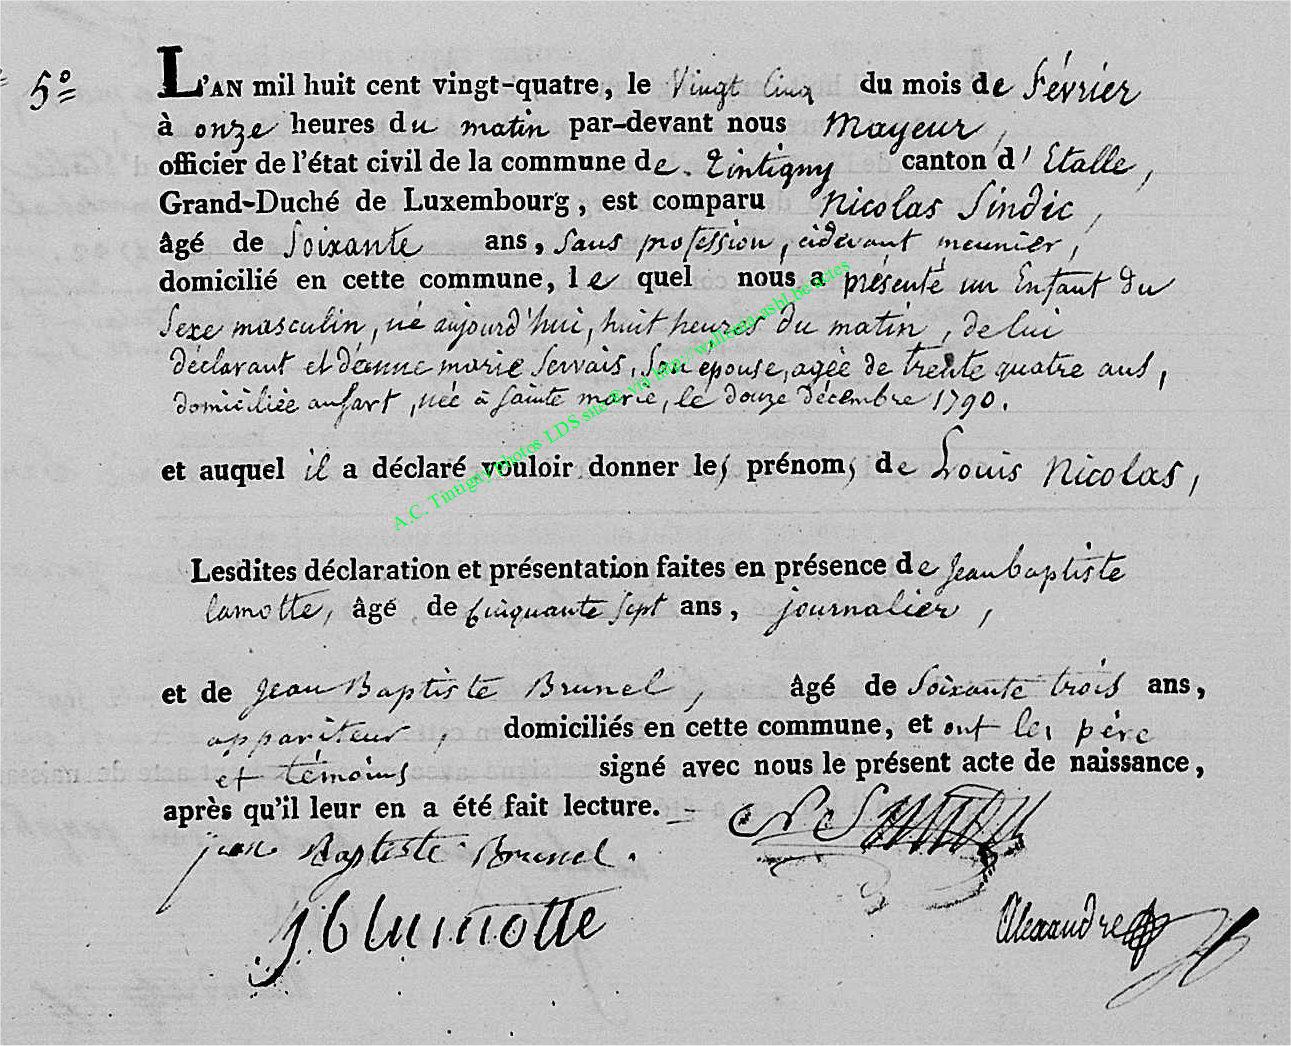 5º
L'AN mil huit cent vingt-quatre, le Vingt Cinq du mois de Février
à onze heures du matin par-devant nous Mayeur,
officier de l'état civil de la commune de Tintigny canton d'Etalle,
Grand-Duché de Luxembourg, est comparu Nicolas Sindic,
âgé de Soixante ans, Sans profession, cidevant meunier,
domicilié en cette commune, le quel nous a présenté un Enfant du
Sexe masculin, né aujourd'hui, huit heures du matin, de lui
déclarant et d'anne marie Servais, Son epouse, agée de trente quatre ans,
domiciliée, née à Sainte marie, le douze Décembre 1790.
et auquel il a déclaré vouloir donner les prénoms de Louis Nicolas,
Lesdites déclaration et présentation faites en présence de Jean baptiste
lamotte, âgé de Cinquante Sept ans, journalier,
et de Jean Baptiste Brunel, âgé de Soixante trois ans,
appariteur, domiciliés en cette commune, et ont les père
et témoins signé avec nous le présent acte de naissance,
après qu'il leur en a été fait lecture.
jean Baptiste Brunel.
J B lamotte
Alexandre
A.C. Tintigny photos LDS site © via http://wallonia-asbl.be/actes